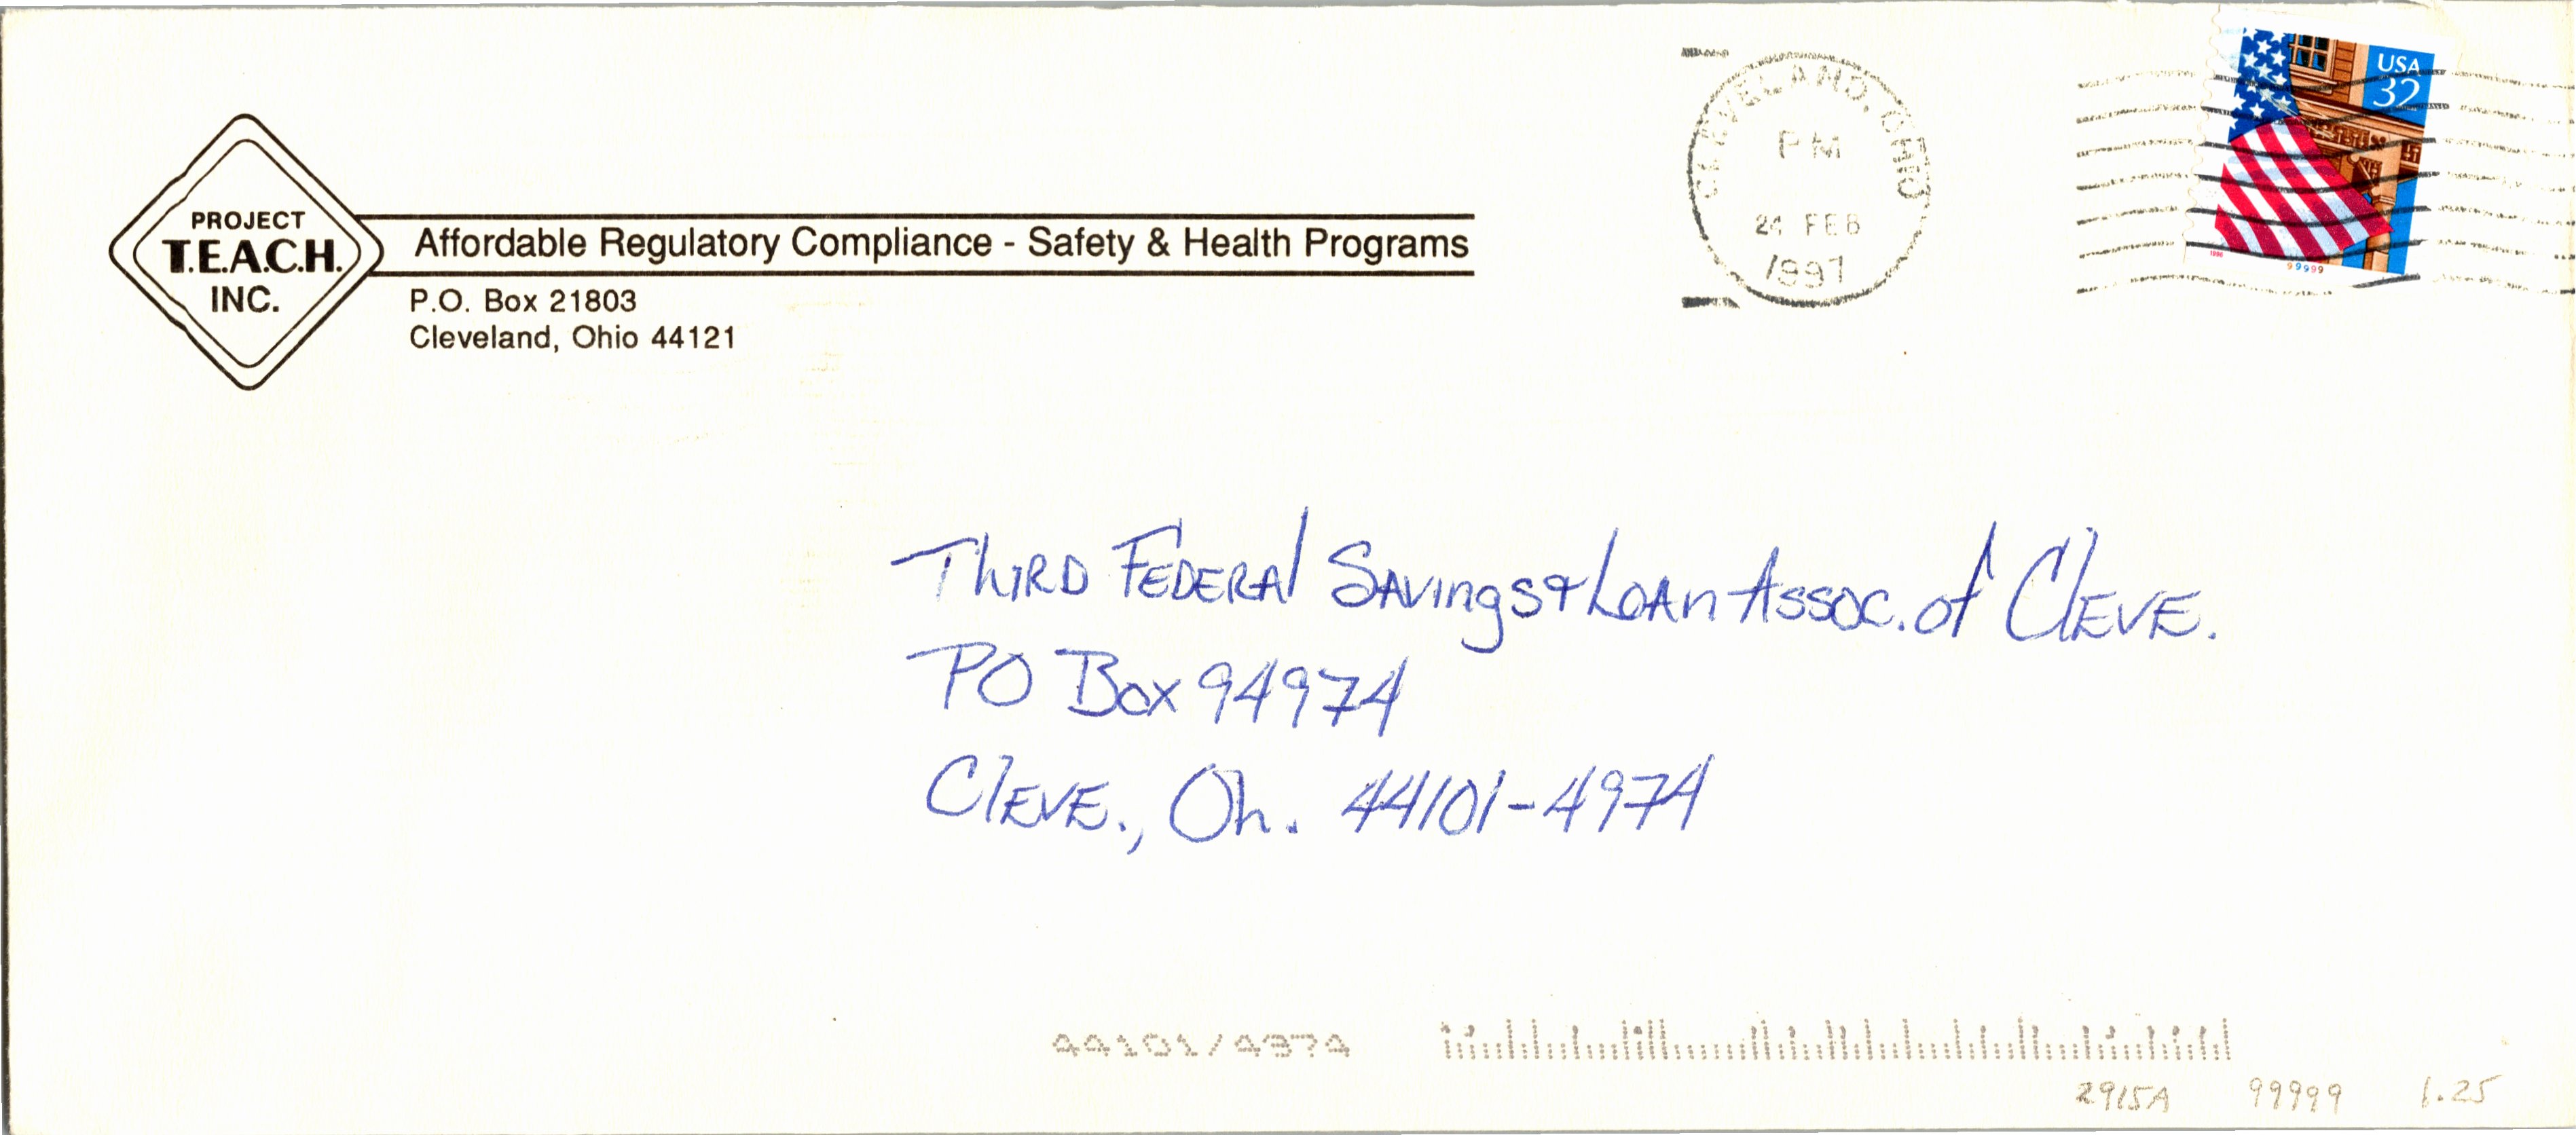 PROJECT
T.E.A.C.H.
INC.
Affordable Regulatory Compliance - Safety & Health Programs
P.O. Box 21803
Cleveland, Ohio 44121
CLEVELAND, OHIO
PM
24 FEB
1997
USA
32
1996
99999
Third Federal Savings & Loan Assoc. of Cleve.
PO Box 94974
Cleve., Oh. 44101-4974
44101/4974
2915A 99999 1.25